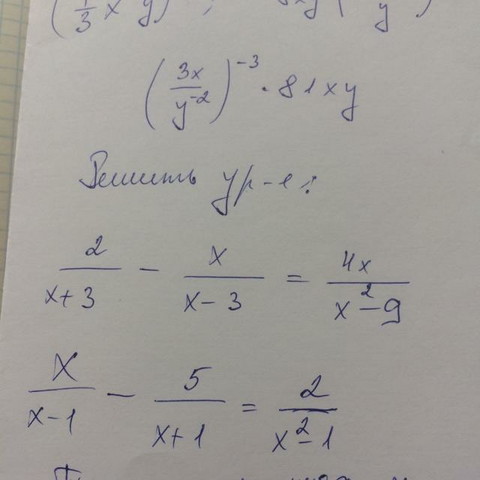 (1/3 x y)
(3x/y^-2)^-3 · 81xy
Решить ур-е:
2/(x+3) - x/(x-3) = 4x/(x^2-9)
x/(x-1) - 5/(x+1) = 2/(x^2-1)